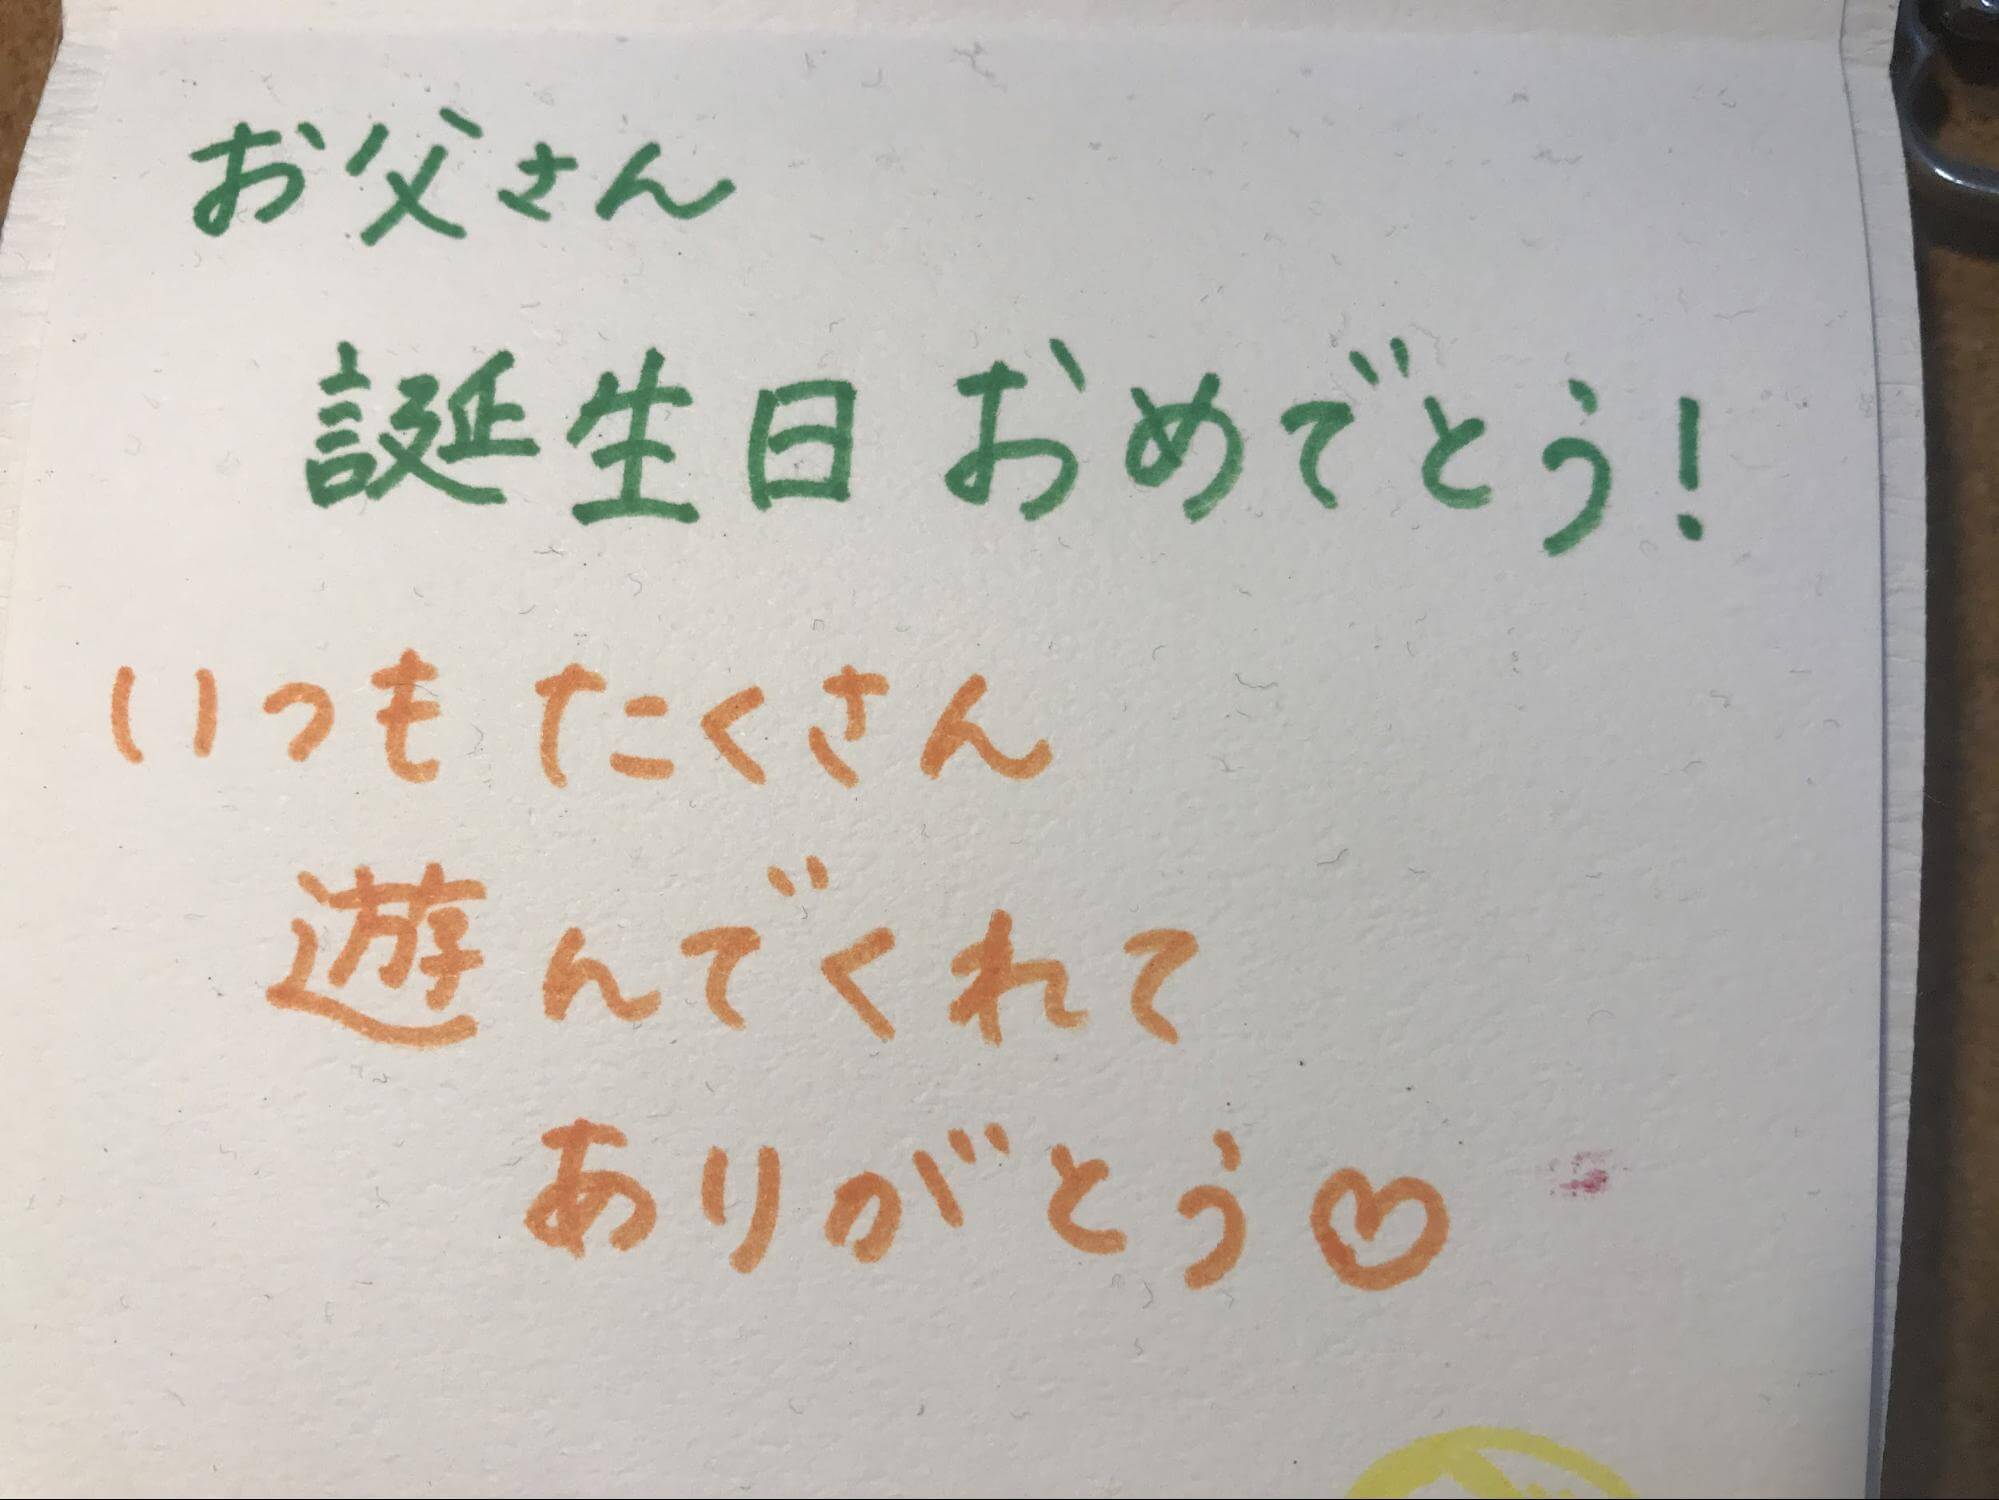 お父さん
誕生日おめでとう!
いつもたくさん
遊んでくれて
ありがとう♡